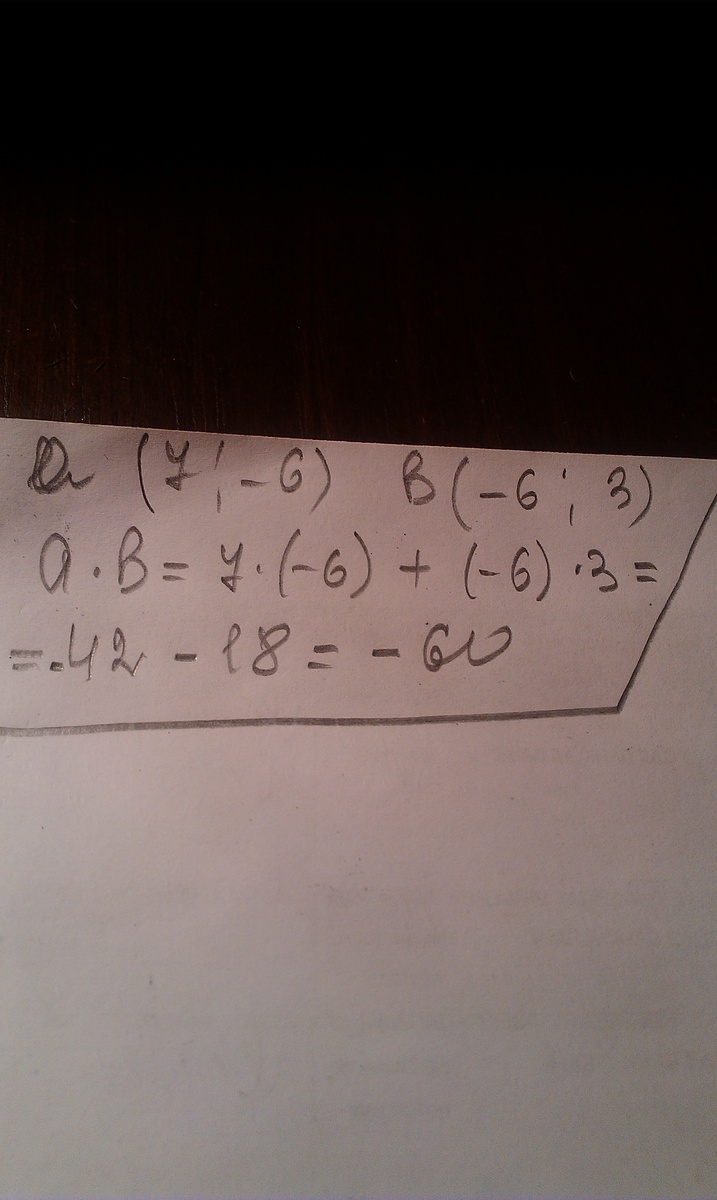 a (7; -6) B(-6; 3)
a · B = 7·(-6) + (-6)·3 =
= -42 - 18 = - 60